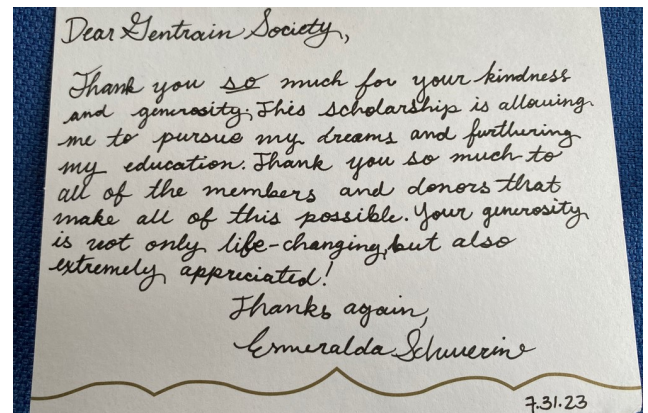 Dear Gentrain Society,
Thank you so much for your kindness
and generosity. This scholarship is allowing
me to pursue my dreams and furthuring
my education. Thank you so much to
all of the members and donors that
make all of this possible. Your generosity
is not only life-changing, but also
extremely appriciated!
Thanks again,
Esmeralda Schwerin
7.31.23